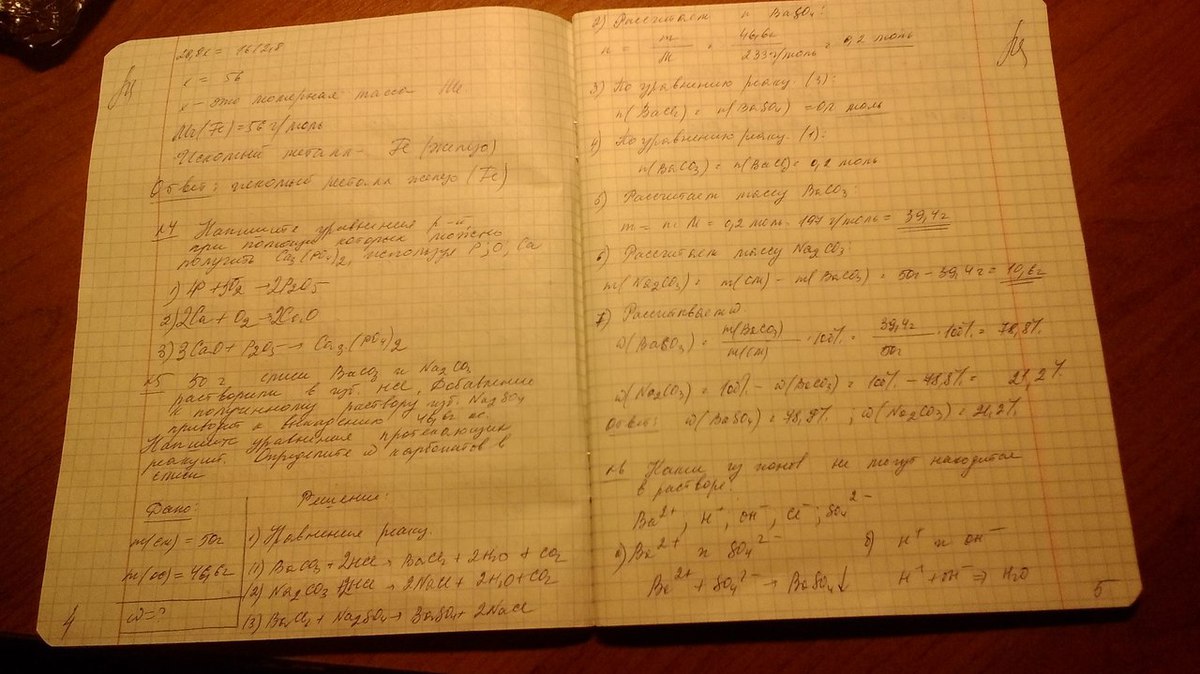 20,8x = 1612,8
x = 56
x - это молярная масса Me
Mr(Fe) = 56 г/моль
Искомый металл - Fe (железо)
Ответ: искомый металл железо (Fe)
№4 Напишите уравнения р-й
при помощи которых можно
получить Ca3(PO4)2, используя P, O, Ca
1) 4P + 5O2 → 2P2O5
2) 2Ca + O2 → 2CaO
3) 3CaO + P2O5 → Ca3(PO4)2
№5 50 г смеси BaCO3 и Na2CO3
растворили в изб. HCl. Добавление
к полученному раствору изб. Na2SO4
приводит к выпадению 46,6г ос.
Напишите уравнения протекающих
реакций. Определите ω карбонатов в
смеси
Дано:
m(см) = 50г
m(ос) = 46,6г
ω = ?
Решение:
1) Уравнения реакц
(1) BaCO3 + 2HCl → BaCl2 + 2H2O + CO2
(2) Na2CO3 + 2HCl → 2NaCl + 2H2O + CO2
(3) BaCl2 + Na2SO4 → BaSO4 + 2NaCl
4
2) Рассчитаем n BaSO4:
n = m/M = 46,6г/233г/моль = 0,2 моль
3) По уравнению реакц. (3):
n(BaCl2) = n(BaSO4) = 0,2 моль
4) По уравнению реакц. (1):
n(BaCO3) = n(BaCl2) = 0,2 моль
5) Рассчитаем массу BaCO3:
m = n · M = 0,2 моль · 197 г/моль = 39,4г
6) Рассчитаем массу Na2CO3:
m(Na2CO3) = m(см) - m(BaCO3) = 50г - 39,4г = 10,6г
7) Рассчитываем ω
ω(BaSO3) = m(BaCO3)/m(см) · 100% = 39,4г/50г · 100% = 78,8%
ω(Na2CO3) = 100% - ω(BaCO3) = 100% - 78,8% = 21,2%
Ответ: ω(BaSO4) = 78,8% ; ω(Na2CO3) = 21,2%
№6 из ионов не могут находится
в растворе:
Ba2+, H+, OH-, Cl-, SO4 2-
а) Ba2+ и SO4 2- б) H+ и OH-
Ba2+ + SO4 2- → BaSO4↓ H+ + OH- → H2O
5